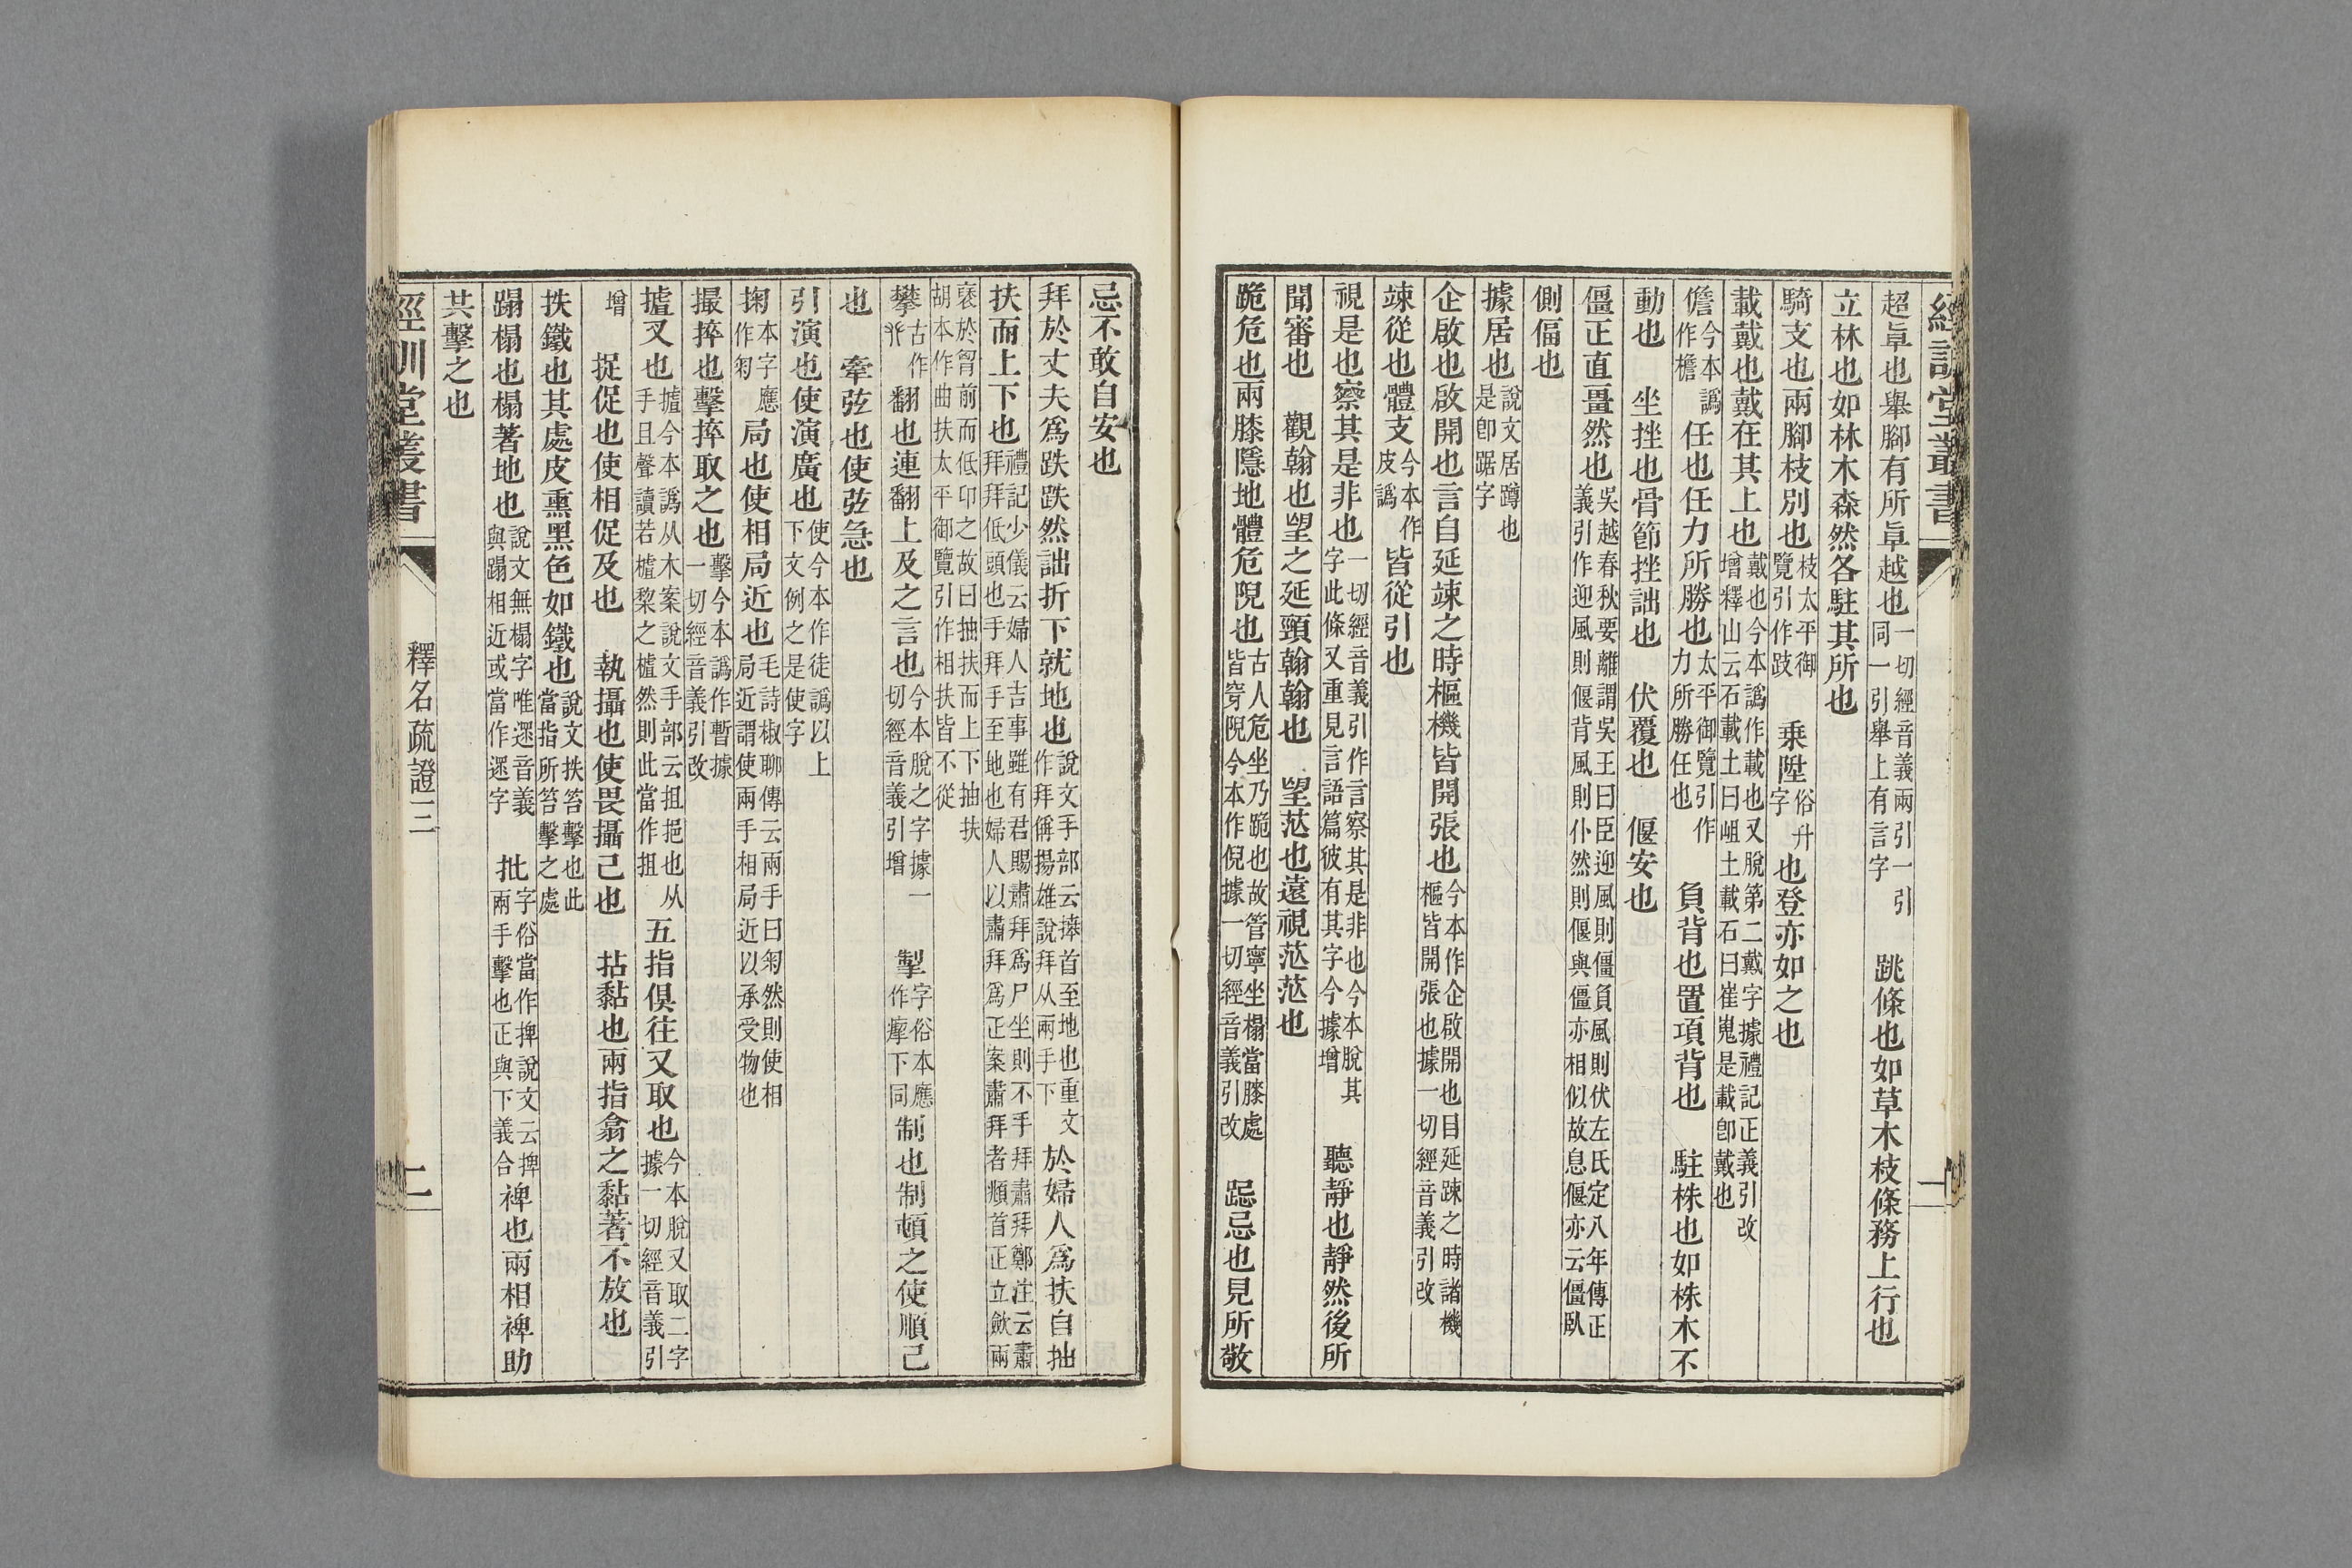 經訓堂叢書
一
超卓也舉腳有所卓越也一切經音義兩引一引同一引舉上有言字 跳條也如草木枝條務上行也
立林也如林木森然各駐其所也
騎支也兩腳枝別也枝太平御覽引作跂 乗陞俗升字也登亦如之也
載戴也戴在其上也戴也今本譌作載也又脫第二戴字據禮記正義引改增釋山云石載土曰岨土載石曰崔嵬是載卽戴也
儋今本譌作檐任也任力所勝也太平御覽引作力所勝任也 負背也置項背也 駐株也如株木不
動也 坐挫也骨節挫詘也 伏覆也 偃安也
僵正直畺然也吳越春秋要離謂吳王曰臣迎風則僵負風則伏左氏定八年傳正義引作迎風則偃背風則仆然則偃與僵亦相似故息偃亦云僵臥
側偪也
據居也說文居蹲也是卽踞字
企啟也啟開也言自延竦之時樞機皆開張也今本作企啟開也目延竦之時諸機樞皆開張也據一切經音義引改
竦從也體支今本作皮譌皆從引也
視是也察其是非也一切經音義引作言察其是非也今本脫其字此條又重見言語篇彼有其字今據增 聽靜也靜然後所
聞審也 觀翰也望之延頸翰翰也 望茫也遠視茫茫也
跪危也兩膝隱地體危隉也古人危坐乃跪也故管寧坐榻當膝處皆穿隉今本作倪據一切經音義引改 跽忌也見所敬
忌不敢自安也
拜於丈夫爲跌跌然詘折下就地也說文手部云𢷎首至地也重文作拜偁揚雄說拜从兩手下 於婦人爲扶自抽
扶而上下也禮記少儀云婦人吉事雖有君賜肅拜爲尸坐則不手拜肅拜鄭注云肅拜拜低頭也手拜手至地也婦人以肅拜爲正案肅拜者頫首正立斂兩
袖於胷前而低卬之故曰抽扶而上下抽扶胡本作曲扶太平御覽引作相扶皆不從
攀古作𠬜翻也連翻上及之言也今本脫之字據一切經音義引增 掣字俗本應作瘳下同制也制頓之使順己
也 牽弦也使弦急也
引演也使演廣也使今本作徒譌以上下文例之是使字
掬本字應作匊局也使相局近也毛詩椒聊傳云兩手曰匊然則使相局近謂使兩手相局近以承受物也
撮捽也擊捽取之也擊今本譌作暫據一切經音義引改
摣叉也摣今本譌从木案說文手部云抯挹也从手且聲讀若樝棃之樝然則此當作抯 五指俱往叉取也今本脫叉取二字據一切經音義引
增 捉促也使相促及也 執攝也使畏攝己也 拈黏也兩指翕之黏著不放也
抶鐵也其處皮熏黑色如鐵也說文抶笞擊也此當指所笞擊之處
蹋榻也榻著地也說文無榻字唯遝音義與蹋相近或當作遝字 批字俗當作捭說文云捭兩手擊也正與下義合裨也兩相裨助
共擊之也
經訓堂叢書
釋名疏證三
二